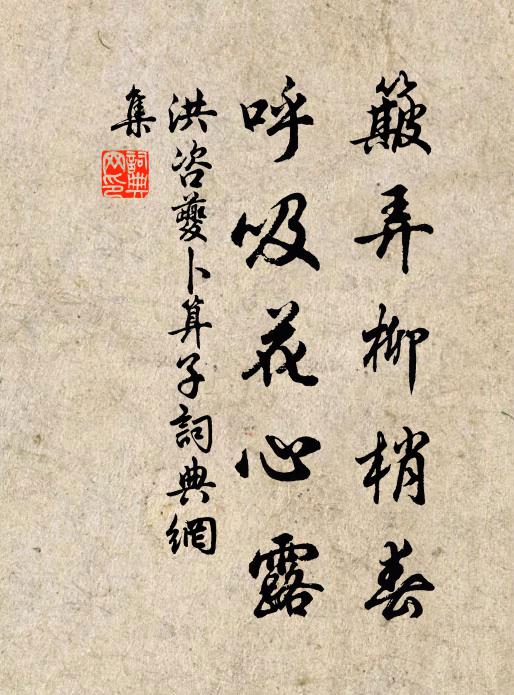 簸弄柳梢春
呼吸花心露
洪咨夔卜算子詞典網
集
詞典網印